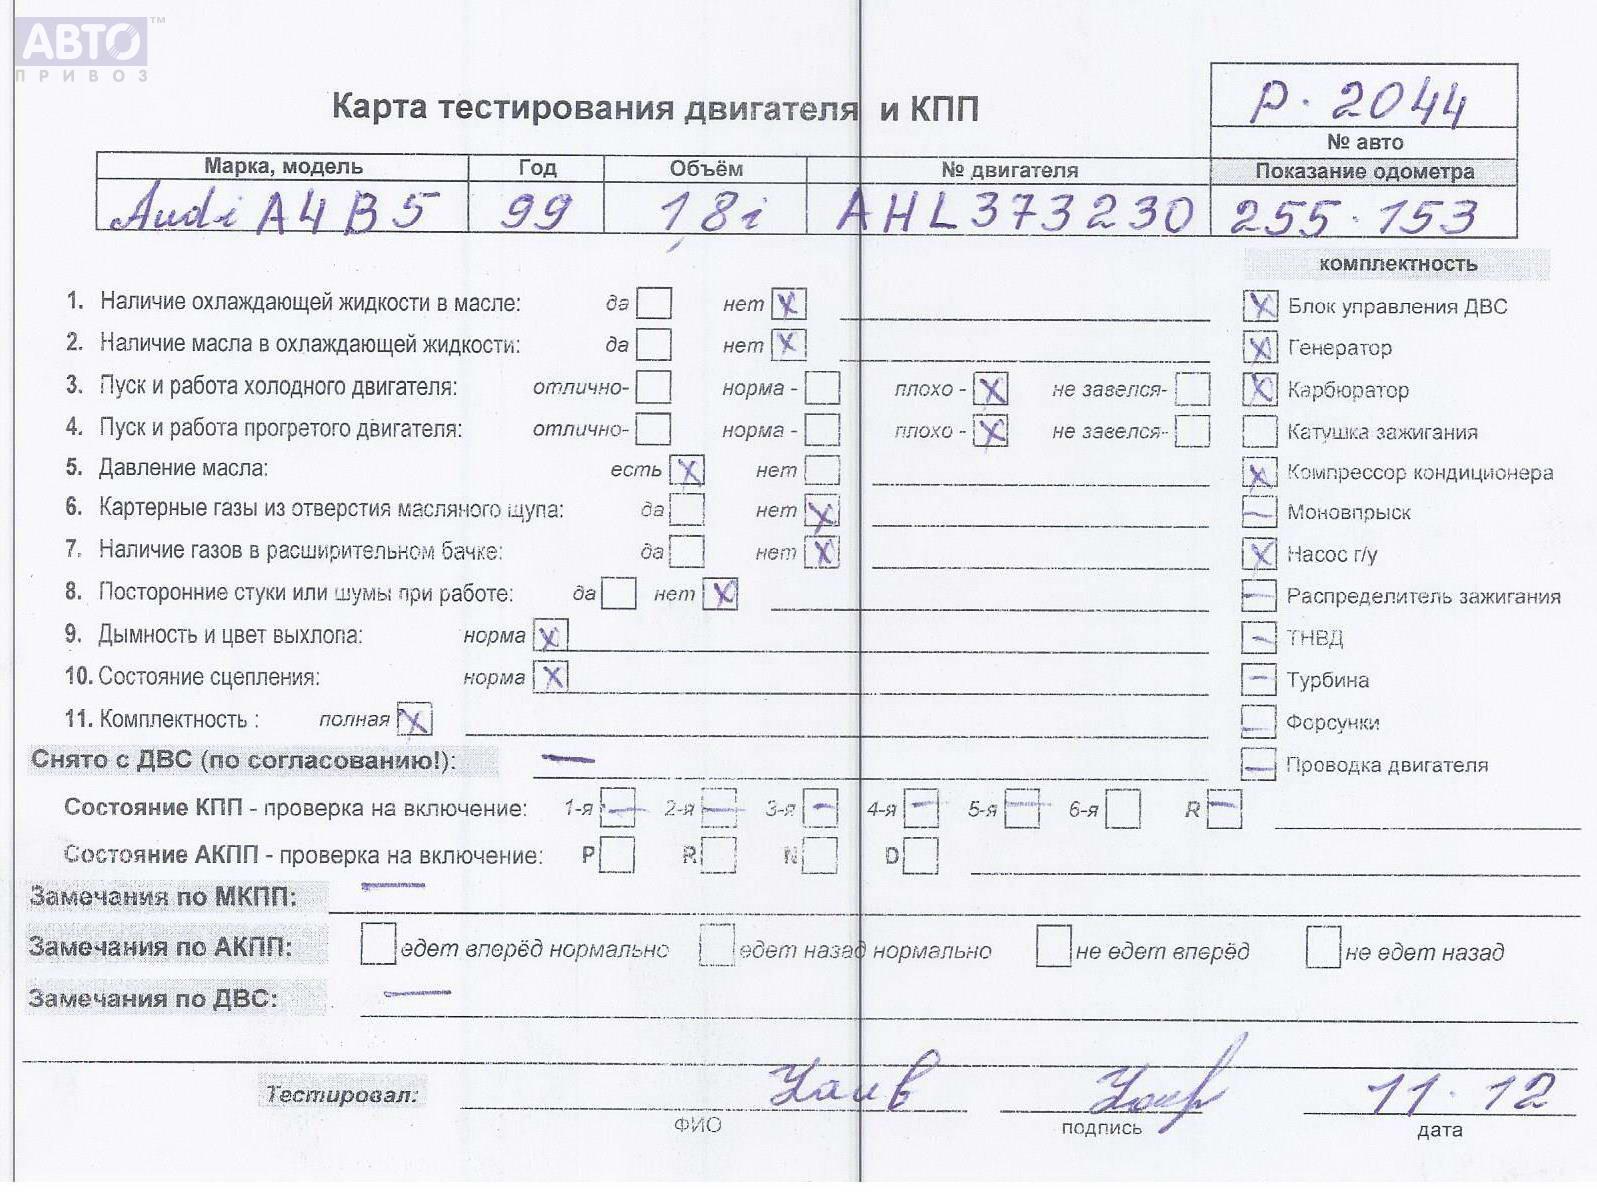 АВТО™
ПРИВОЗ
Карта тестирования двигателя и КПП
Р. 2044
№ авто
Марка, модель Год Объём № двигателя Показание одометра
Audi A4 B5 99 1,8i AHL373230 255.153
комплектность
1. Наличие охлаждающей жидкости в масле: да нет X
Блок управления ДВС X
2. Наличие масла в охлаждающей жидкости: да нет X
Генератор X
3. Пуск и работа холодного двигателя: отлично- норма - плохо - X не завелся-
Карбюратор X
4. Пуск и работа прогретого двигателя: отлично- норма - плохо - X не завелся-
Катушка зажигания
5. Давление масла: есть X нет
Компрессор кондиционера X
6. Картерные газы из отверстия масляного щупа: да нет X
Моновпрыск —
7. Наличие газов в расширительном бачке: да нет X
Насос г/у X
8. Посторонние стуки или шумы при работе: да нет X
Распределитель зажигания —
9. Дымность и цвет выхлопа: норма X
ТНВД —
10. Состояние сцепления: норма X
Турбина —
11. Комплектность : полная X
Форсунки —
Снято с ДВС (по согласованию!): —
Проводка двигателя —
Состояние КПП - проверка на включение: 1-я — 2-я — 3-я — 4-я — 5-я — 6-я R —
Состояние АКПП - проверка на включение: P R N D
Замечания по МКПП: —
Замечания по АКПП: едет вперёд нормально едет назад нормально не едет вперёд не едет назад
Замечания по ДВС: —
Тестировал: 11.12
ФИО подпись дата